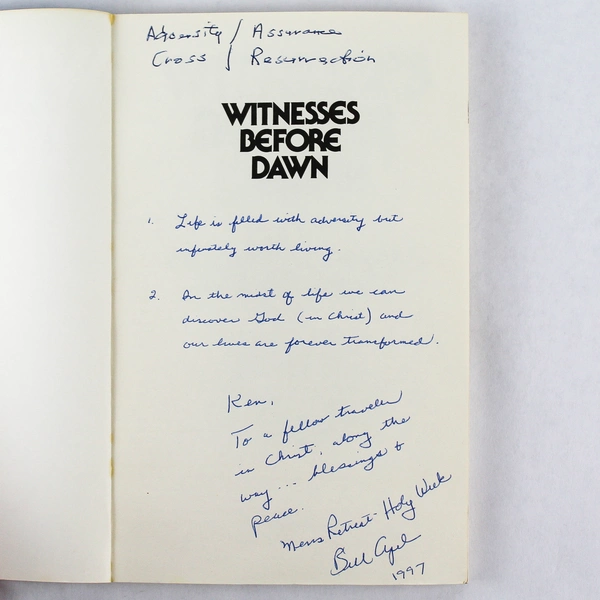 Adversity / Assurance
Cross / Resurrection
WITNESSES
BEFORE
DAWN
1. Life is filled with adversity but
infinitely worth living.
2. In the midst of life we can
discover God (in Christ) and
our lives are forever transformed.
Ken,
To a fellow traveler
in Christ, along the
way... blessings &
peace.
Mens Retreat - Holy Week
Bill Apel
1997